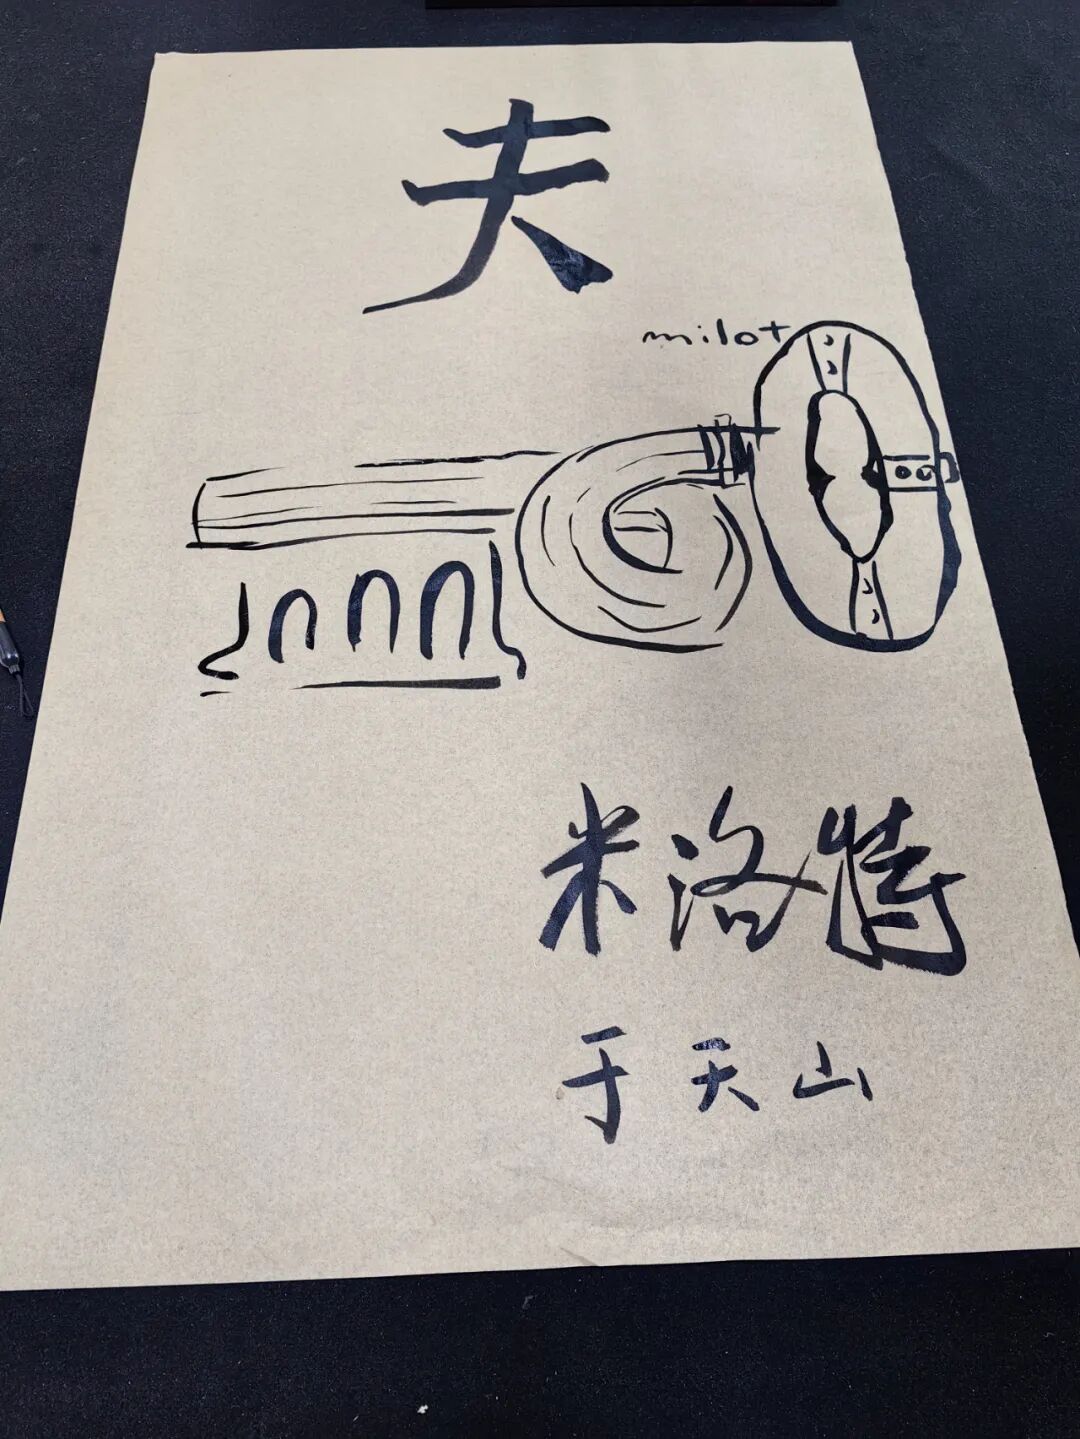 夫
milot
米洛特
于天山